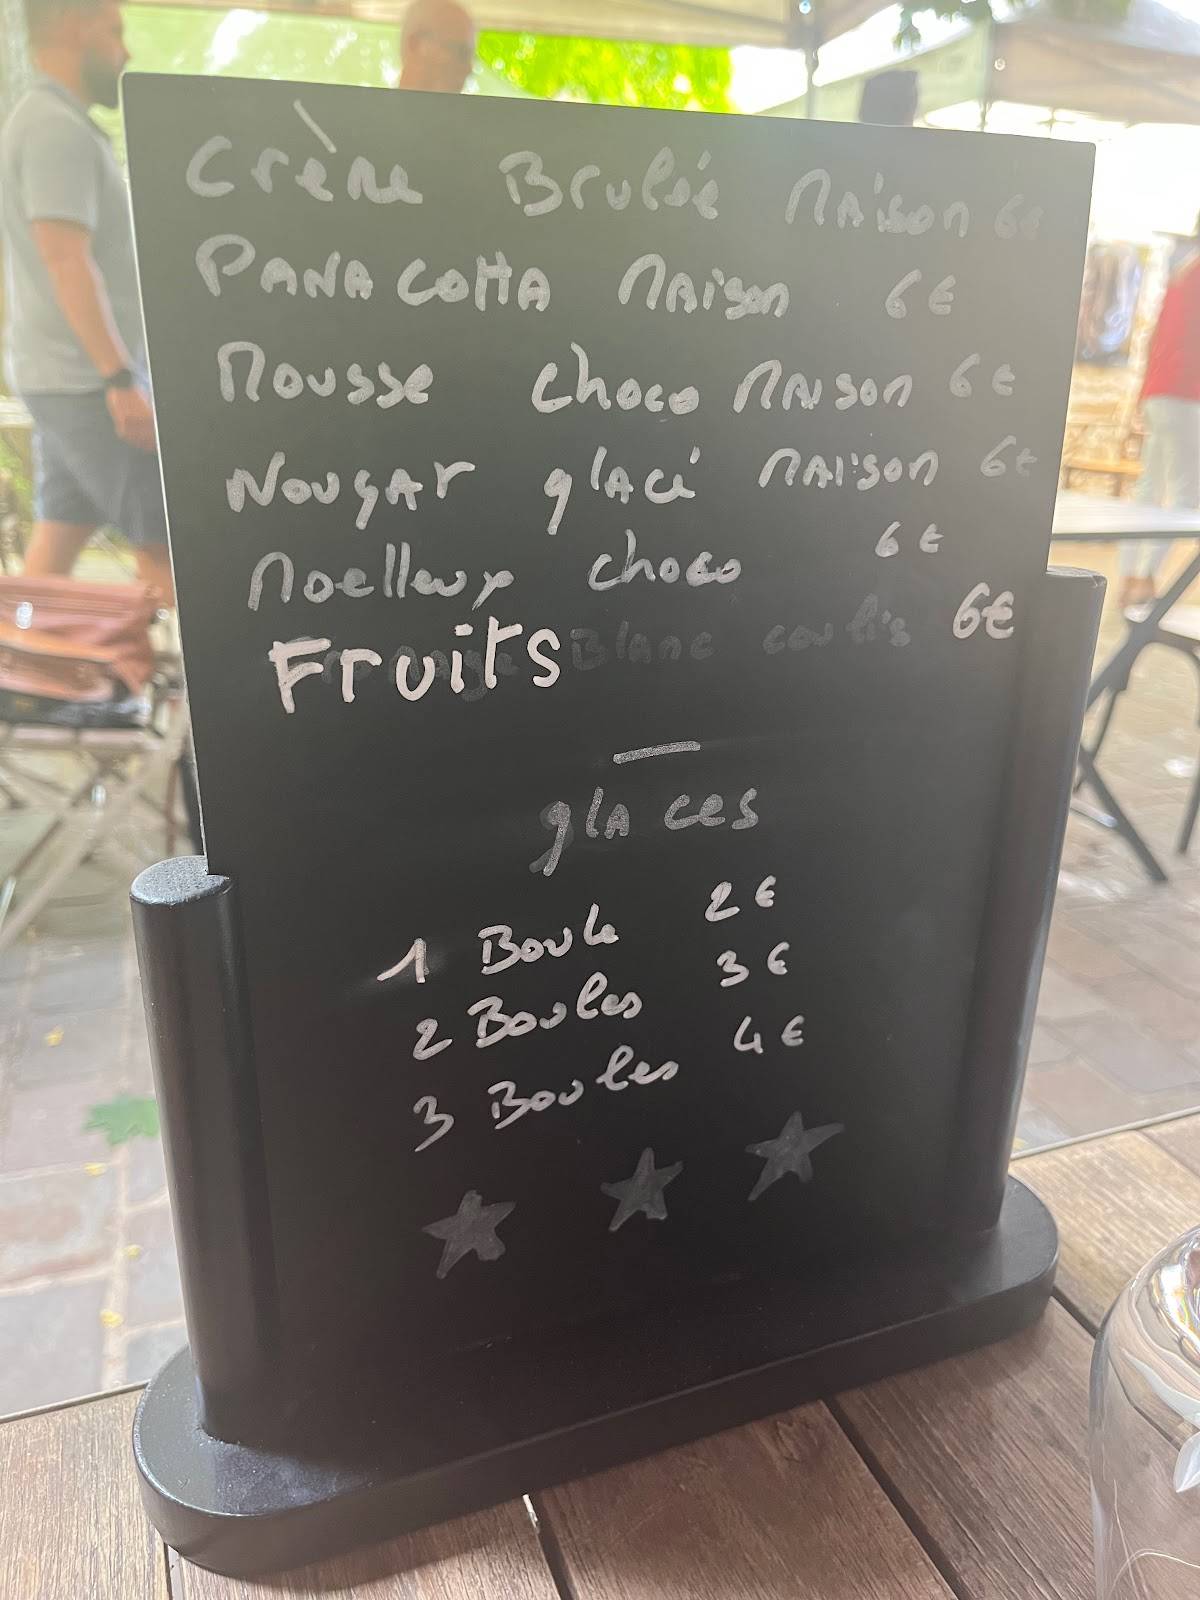 Crème Brulée Maison 6€
PANA COTTA MAison 6€
Mousse choco MAison 6€
Nougat glacé MAison 6€
Moelleux choco 6€
Fruits Blanc coulis 6€
glaces
1 Boule 2€
2 Boules 3€
3 Boules 4€